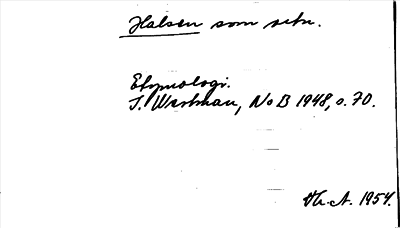 Halsen som setn.
Etymologi.
I. Westman, NoB 1948, s. 70.
Vh-A. 1954.